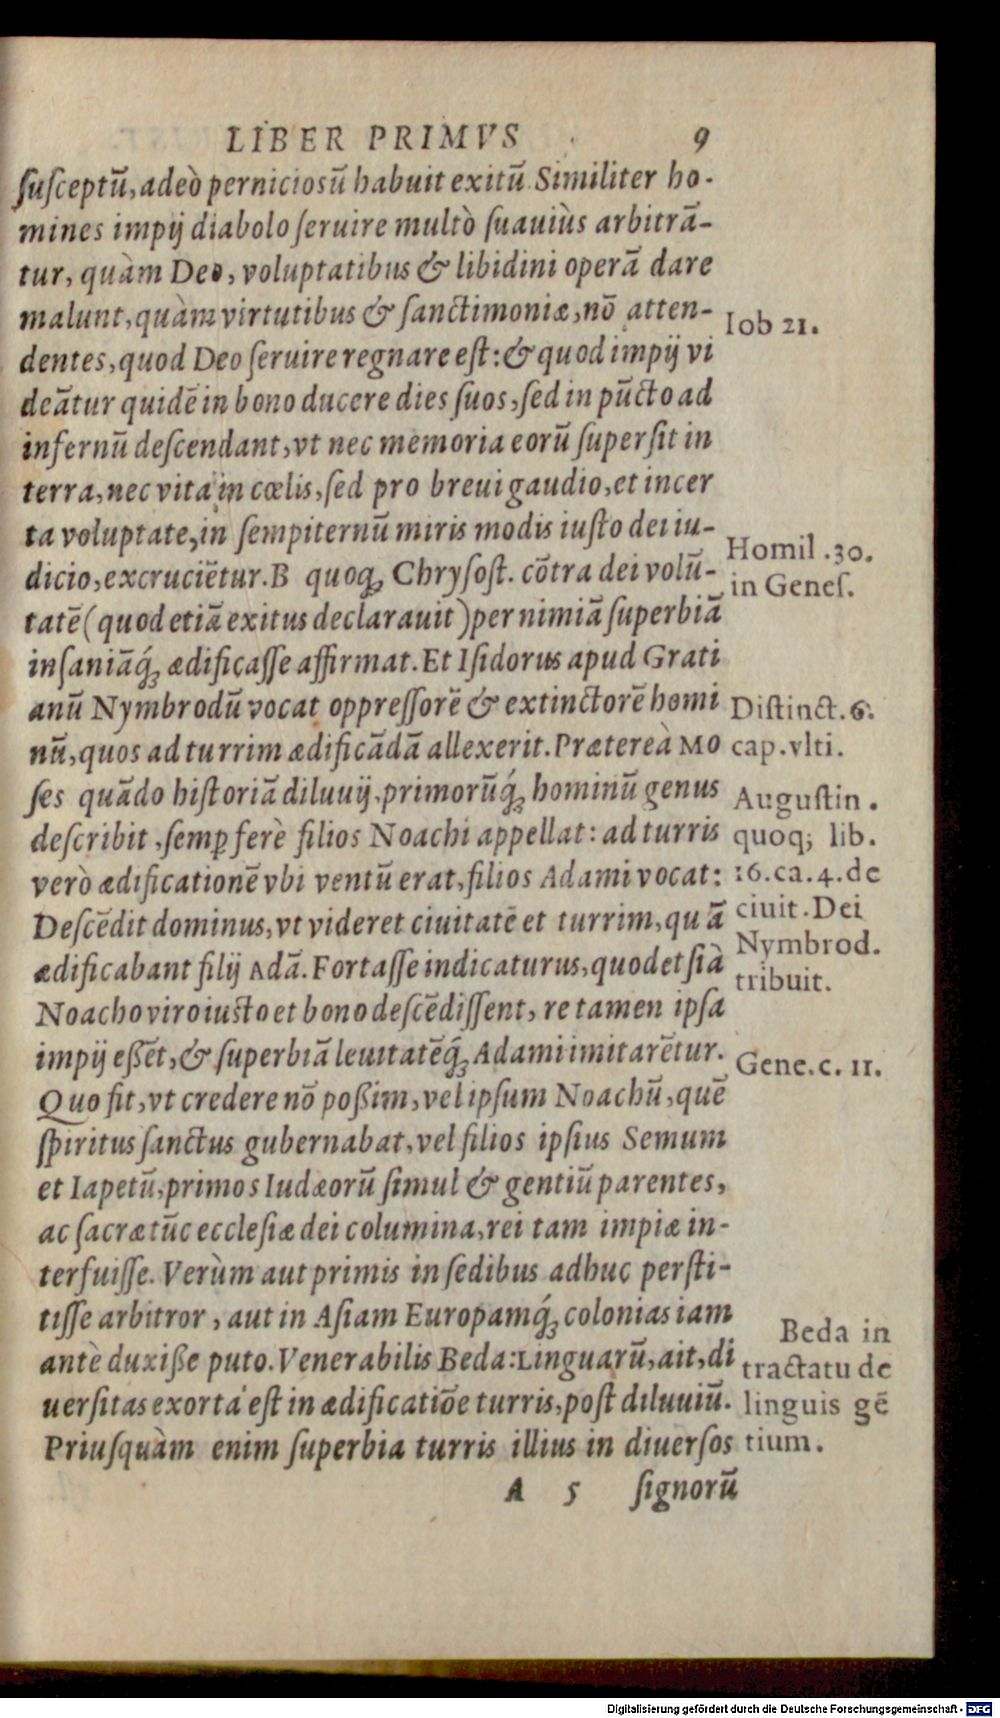 LIBER PRIMVS 9
ſuſceptū, adeò pernicioſū habuit exitū. Similiter ho-
mines impij diabolo ſeruire multò ſuauiùs arbitrā-
tur, quàm Deo, voluptatibus & libidini operā dare
malunt, quàm virtutibus & ſanctimoniæ, nō atten-
dentes, quod Deo ſeruire regnare eſt: & quod impij vi
deātur quidē in bono ducere dies ſuos, ſed in pūcto ad
infernū deſcendant, vt nec memoria eorū ſuperſit in
terra, nec vita in cœlis, ſed pro breui gaudio, et incer
ta voluptate, in ſempiternū miris modis iuſto dei iu-
dicio, excruciētur. B quoq; Chryſoſt. cōtra dei volū-
tatē (quod etiā exitus declarauit) per nimiā ſuperbiā
inſaniāq́; ædificaſſe affirmat. Et Iſidorus apud Grati
anū Nymbrodū vocat oppreſſorē & extinctorē homi
nū, quos ad turrim ædificādā allexerit. Prætereà Mo
ſes quādo hiſtoriā diluuij, primorūq́; hominū genus
deſcribit, ſemꝑ ferè filios Noachi appellat: ad turris
verò ædificationē vbi ventū erat, filios Adami vocat:
Deſcēdit dominus, vt videret ciuitatē et turrim, quā
ædificabant filij Adā. Fortaſſe indicaturus, quod et ſi à
Noacho viro iuſto et bono deſcēdiſſent, re tamen ipſa
impij eßēt, & ſuperbiā leuitatēq́; Adami imitarētur.
Quo fit, vt credere nō poßim, vel ipſum Noachū, quē
ſpiritus ſanctus gubernabat, vel filios ipſius Semum
et Iapetū, primos Iudæorū ſimul & gentiū parentes,
ac ſacræ tūc eccleſiæ dei columina, rei tam impiæ in-
terfuiſſe. Verùm aut primis in ſedibus adhuc perſti-
tiſſe arbitror, aut in Aſiam Europamq́; colonias iam
antè duxiße puto. Venerabilis Beda: Linguarū, ait, di
uerſitas exorta eſt in ædificatiōe turris, poſt diluuiū.
Priuſquàm enim ſuperbia turris illius in diuerſos
A 5 ſignorū
Iob 21.
Homil. 30.
in Geneſ.
Diſtinct. 6.
cap. vlti.
Auguſtin.
quoq; lib.
16. ca. 4. de
ciuit. Dei
Nymbrod.
tribuit.
Gene. c. 11.
Beda in
tractatu de
linguis gē
tium.
Digitalisierung gefördert durch die Deutsche Forschungsgemeinschaft - DFG